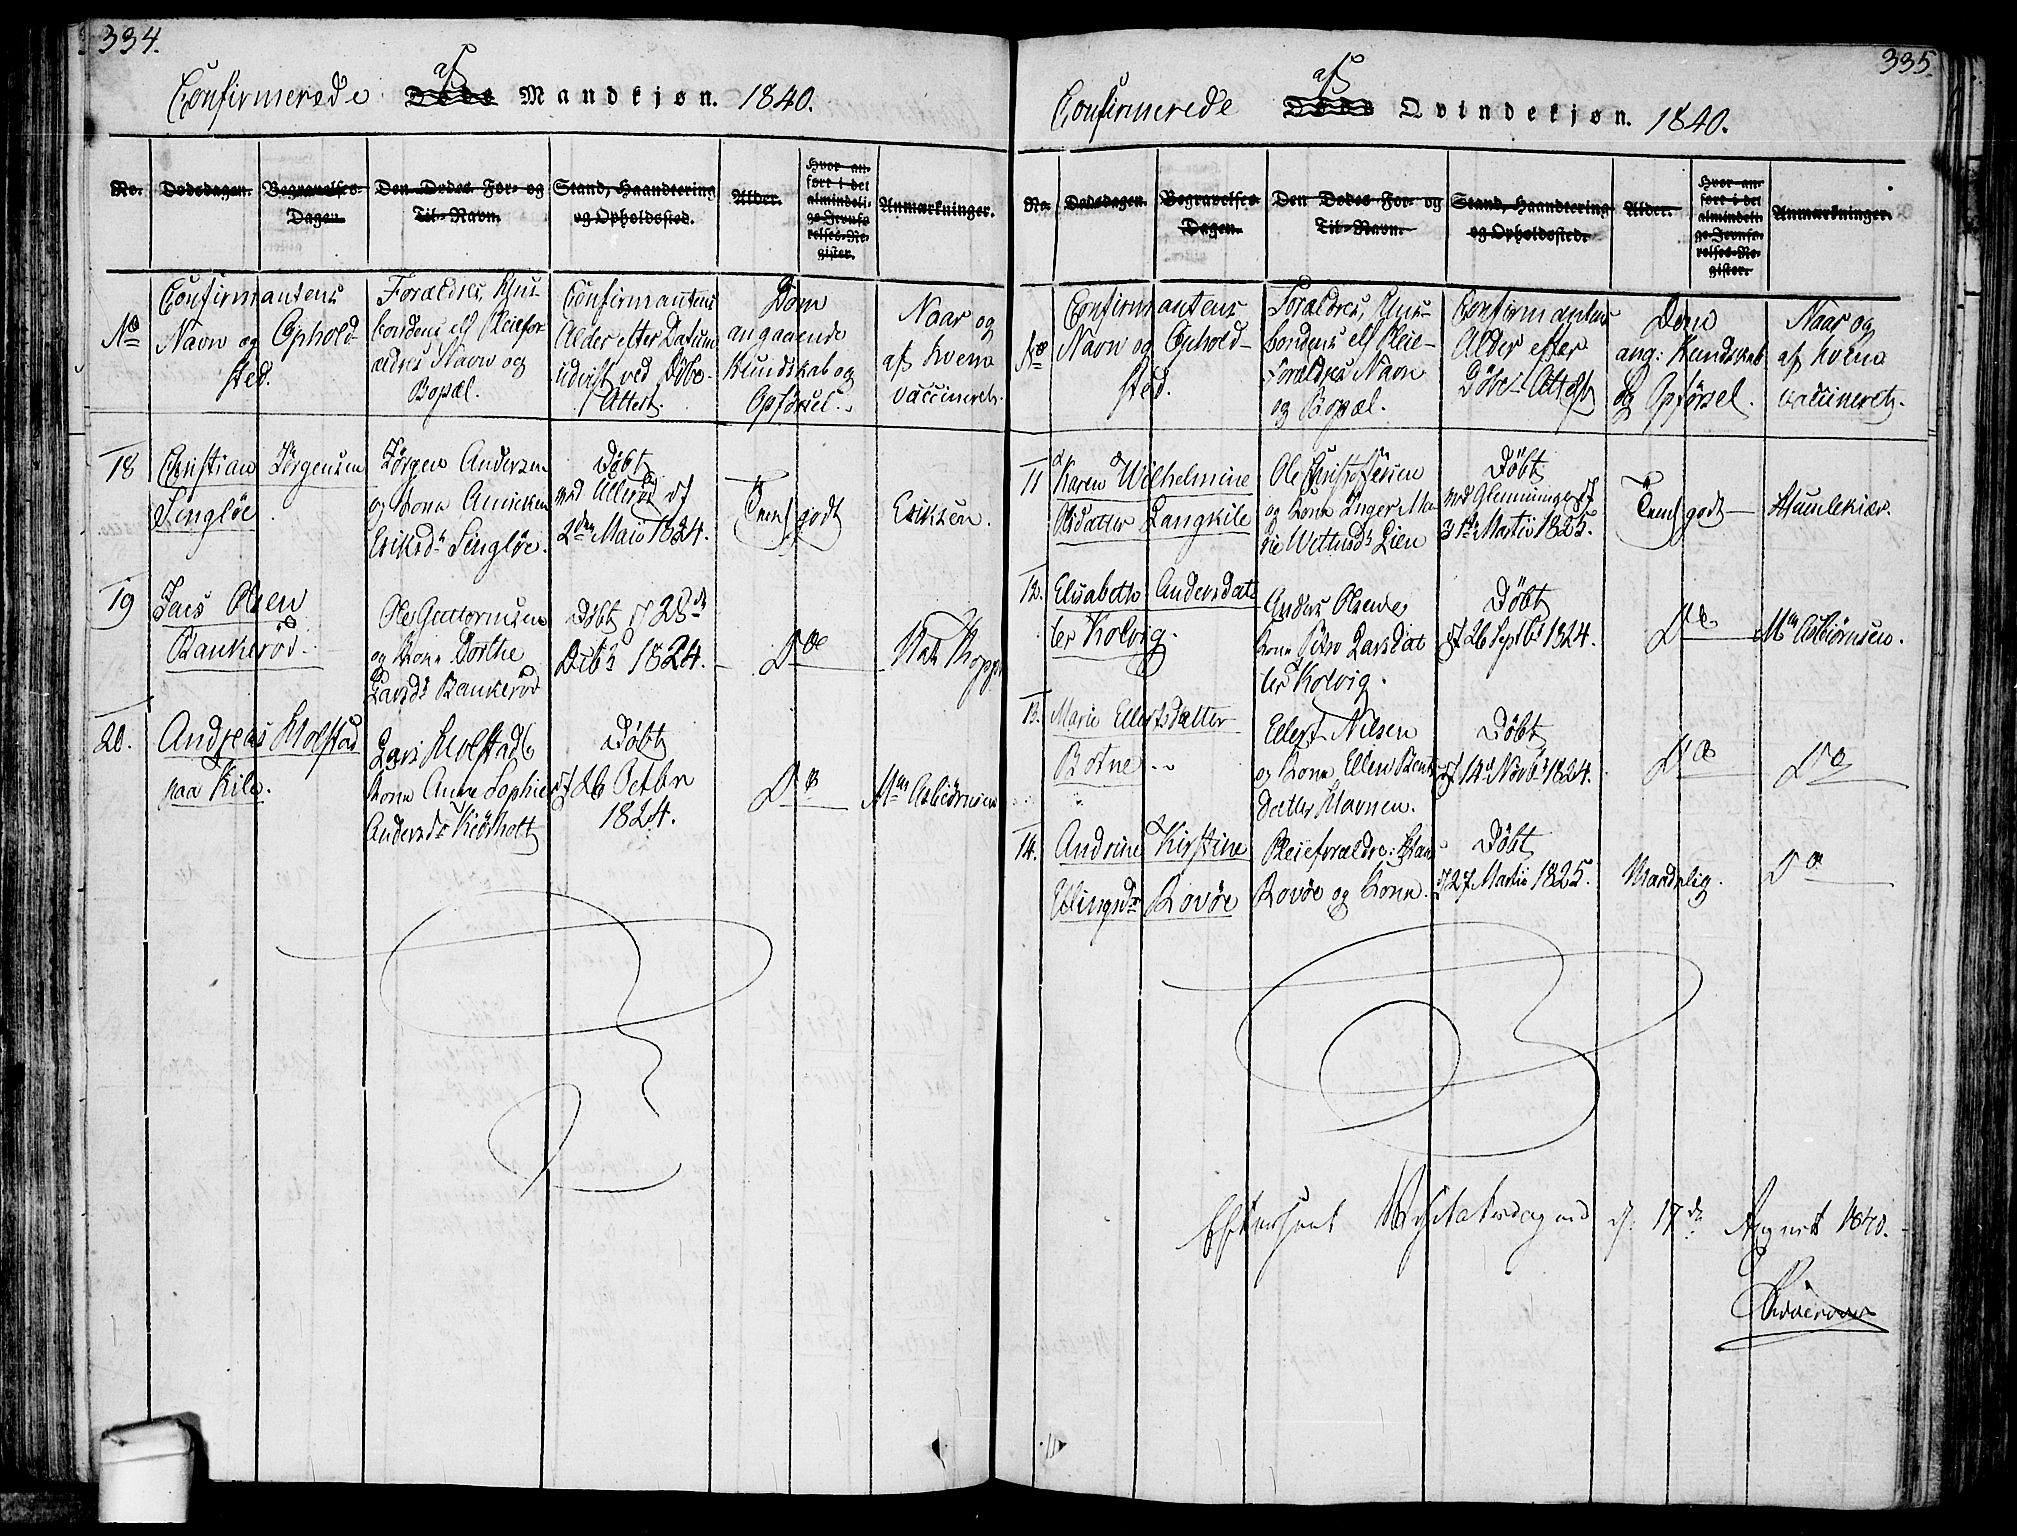 334.
Confirmerede af Døde Mandkjøn. 1840.
No. Dødsdagen. Begravelses-Dagen. Den Dødes For- og Til-Navn. Stand, Haandtering og Opholdssted. Alder. Hvor anført i det almindelige Jevnførelses-Register. Anmærkninger.
No
Confirmantens
Navn og Ophold-
sted.
Forældres, Huus-
bondens ell Pleiefor-
ældres Navn og
Bopæl.
Confirmantens
Alder efter Datum
udvist ved Døbe-
Attest.
Dom
angaaende
Kundskab og
Opførsel.
Naar og
af hvem
vaccineret.
18
Christian Jørgensen
Singløe.
Jørgen Andersen
og Kone Anniken
Eriksdr Singløe.
Døbt
ved
2den Maio 1824.
Tem. godt
Eriksen.
19
Lars Olsen
Bankerød.
Ole Guttormsen
og Kone Dorthe
Larsdr Bankerød
Døbt d 28de
Decbr 1824.
Do
Nat. Kopper
20.
Andreas Holstad
paa Kile.
Lars Holstad &
Kone Anne Sophie
Andersdr Kiørholt
Døbt
d 26 Octbr
1824.
Do
Mm Asbiørnsen
335.
Confirmerede af Døde Qvindekjøn. 1840.
No. Dødsdagen. Begravelses-Dagen. Den Dødes For- og Til-Navn. Stand, Haandtering og Opholdssted. Alder. Hvor anført i det almindelige Jevnførelses-Register. Anmærkninger.
No
Confirmantens
Navn og Ophold-
sted.
Forældres, Huus-
bondens ell Pleie-
Forældres Navn
og Bopæl.
Confirmantens
Alder efter
Døbe-Attest
Dom
ang: Kundskab
og Opførsel.
Naar og
af hvem
vaccineret.
11
Karen Wilhelmine
Olsdatter Langkile
Ole Christophersen
og Kone Inger Ma-
rie Wettusdr Lien
Døbt
ved Glemminge d
31te Martii 1825.
Tem. godt
Humlekiær.
12.
Elisabeth Andersdat-
ter Kolvig.
Anders Olsen &
Kone Larsdat-
ter Kolvig.
Døbt
d 26 Septbr 1824.
Do
Mm Asbiørnsen.
13.
Marie Ellertsdatter
Botne
Ellert Nilsen
og Kone Ellen Bent-
datter Havnen.
Døbt
d 14de Novbr 1824.
Do
Do
14.
Andrine Kirstine
Rovøe
Pleieforældre: Hans
Rovøe og Kone.
Døbt
d 27 Martii 1825.
Maadelig.
Do
Efterseet Visitatsdagen d. 17de August 1840.